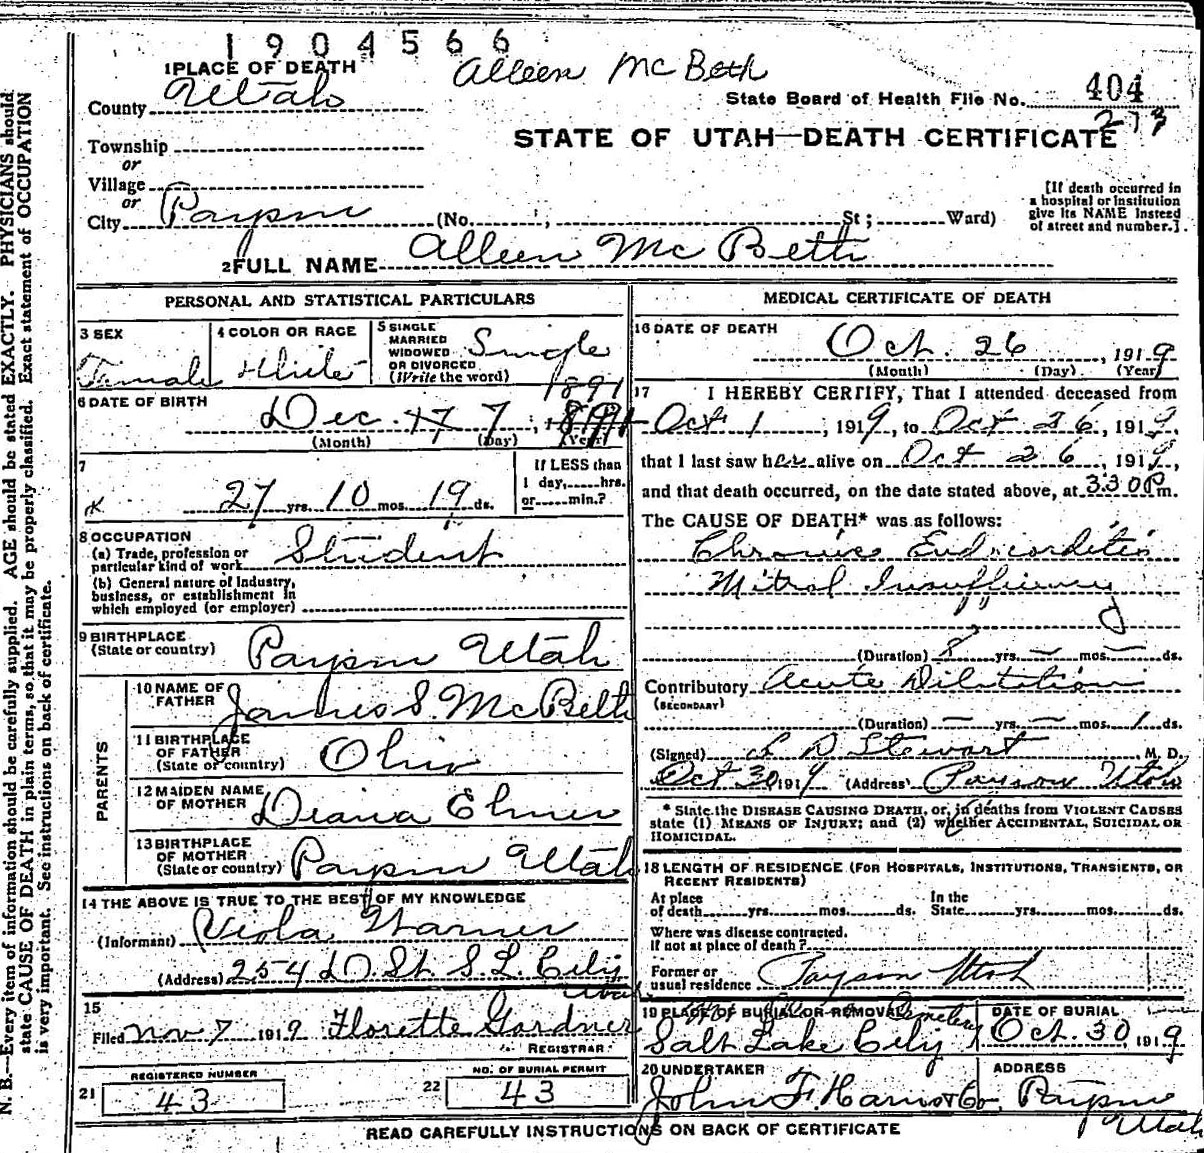 1904566
Alleen McBeth
1 PLACE OF DEATH
County Utah
State Board of Health File No. 404
273
STATE OF UTAH—DEATH CERTIFICATE
Township
or
Village
or
City Payson (No. , St; Ward)
[If death occurred in
a hospital or institution
give its NAME instead
of street and number.]
2 FULL NAME Alleen McBeth
PERSONAL AND STATISTICAL PARTICULARS
3 SEX
Female
4 COLOR OR RACE
White
5 SINGLE
MARRIED
WIDOWED
OR DIVORCED
(Write the word)
Single
6 DATE OF BIRTH
1891
Dec. 7
(Month) (Day) (Year)
7
27 yrs. 10 mos. 19 ds.
If LESS than
1 day, hrs.
or min.?
8 OCCUPATION
(a) Trade, profession or
particular kind of work
Student
(b) General nature of Industry,
business, or establishment in
which employed (or employer)
9 BIRTHPLACE
(State or country)
Payson Utah
PARENTS
10 NAME OF
FATHER
James S. McBeth
11 BIRTHPLACE
OF FATHER
(State or country)
Ohio
12 MAIDEN NAME
OF MOTHER
Diana Elmer
13 BIRTHPLACE
OF MOTHER
(State or country)
Payson Utah
14 THE ABOVE IS TRUE TO THE BEST OF MY KNOWLEDGE
(Informant) Viola Warner
(Address) 254 D. St. S. L. City
Utah
15
Filed Nov 7 1919 Florette Gardner
REGISTRAR
21 REGISTERED NUMBER
43
22 NO. OF BURIAL PERMIT
43
MEDICAL CERTIFICATE OF DEATH
16 DATE OF DEATH
Oct. 26, 1919
(Month) (Day) (Year)
17 I HEREBY CERTIFY, That I attended deceased from
Oct 1, 1919, to Oct 26, 1919,
that I last saw her alive on Oct 26, 1919,
and that death occurred, on the date stated above, at 3:30 P m.
The CAUSE OF DEATH* was as follows:
Chronic Endocarditis
Mitral Insufficiency
(Duration) 8 yrs. — mos. — ds.
Contributory Acute Dilatation
(SECONDARY)
(Duration) — yrs. — mos. 1 ds.
(Signed) L D Stewart M. D.
Oct 30 1919 (Address) Payson Utah
* State the DISEASE CAUSING DEATH, or, in deaths from VIOLENT CAUSES
state (1) MEANS OF INJURY; and (2) whether ACCIDENTAL, SUICIDAL OR
HOMICIDAL.
18 LENGTH OF RESIDENCE (FOR HOSPITALS, INSTITUTIONS, TRANSIENTS, OR
RECENT RESIDENTS)
At place
of death yrs. mos. ds.
In the
State yrs. mos. ds.
Where was disease contracted.
If not at place of death?
Former or
usual residence Payson Utah
19 PLACE OF BURIAL OR REMOVAL
Cemetery
Salt Lake City
DATE OF BURIAL
Oct. 30, 1919
20 UNDERTAKER
John F.
ADDRESS
Payson
Utah
READ CAREFULLY INSTRUCTIONS ON BACK OF CERTIFICATE
N. B.—Every item of information should be carefully supplied. AGE should be stated EXACTLY. PHYSICIANS should
state CAUSE OF DEATH in plain terms, so that it may be properly classified. Exact statement of OCCUPATION
is very important. See instructions on back of certificate.